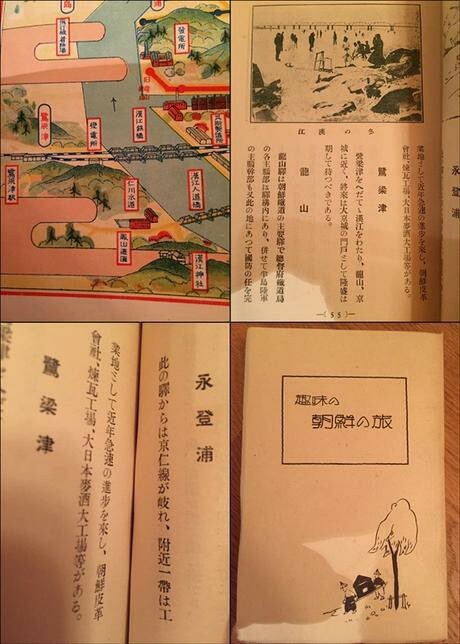 發電所
鷺梁津
變電所
漢江鉄橋
鷺梁津駅
仁川水道
漢江人道橋
漢江神社
冬の漢江
業地として近年急速の進步を來し、朝鮮皮革
會社、煉瓦工場、大日本麥酒大工場等がある。
鷺梁津
鷺梁津をへだてゝ漢江をわたり、龍山、京
城に近く、將來は大京城の門戶として隆盛は
期して待つべきである。
龍山
龍山驛は朝鮮鐵道の主要驛で總督府鐵道局
の各主腦部は驛構內にあり、併せて半島陸軍
の主腦幹部も又此の地にあつて國防の任を完
—( 55 )—
永登浦
此の驛からは京仁線が岐れ、附近一帶は工
業地として近年急速の進步を來し、朝鮮皮革
會社、煉瓦工場、大日本麥酒大工場等がある。
鷺梁津
趣味の
朝鮮の旅